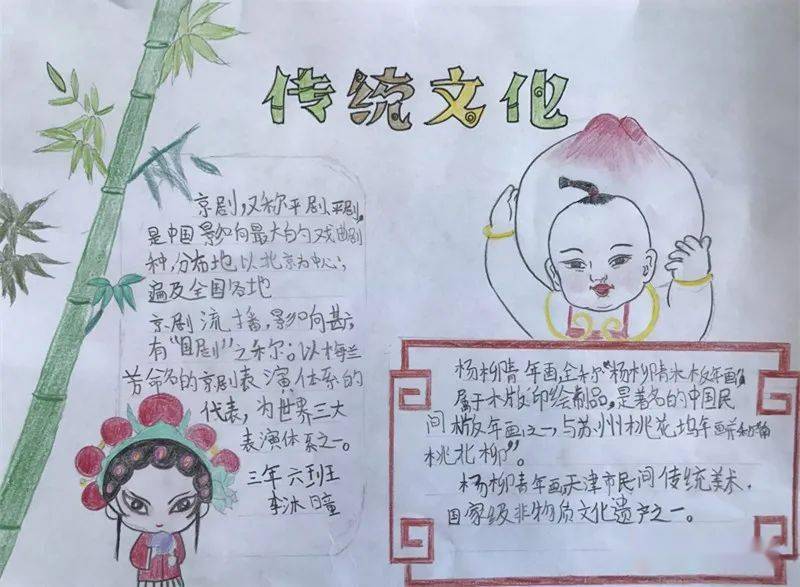 传统文化
京剧,又称平剧,平剧,
是中国影响最大的戏曲剧
种,分布地以北京为中心,
遍及全国各地
京剧流播,影响甚广
有"国剧"之称。以梅兰
芳命名的京剧表演体系的
代表,为世界三大
表演体系之一。
三年六班
李沐瞳
杨柳青年画,全称"杨柳青木板年画",
属于木版印绘制品,是著名的中国民
间版年画之一,与苏州桃花坞年画
桃北柳"。
杨柳青年画天津市民间传统美术,
国家级非物质文化遗产之一。